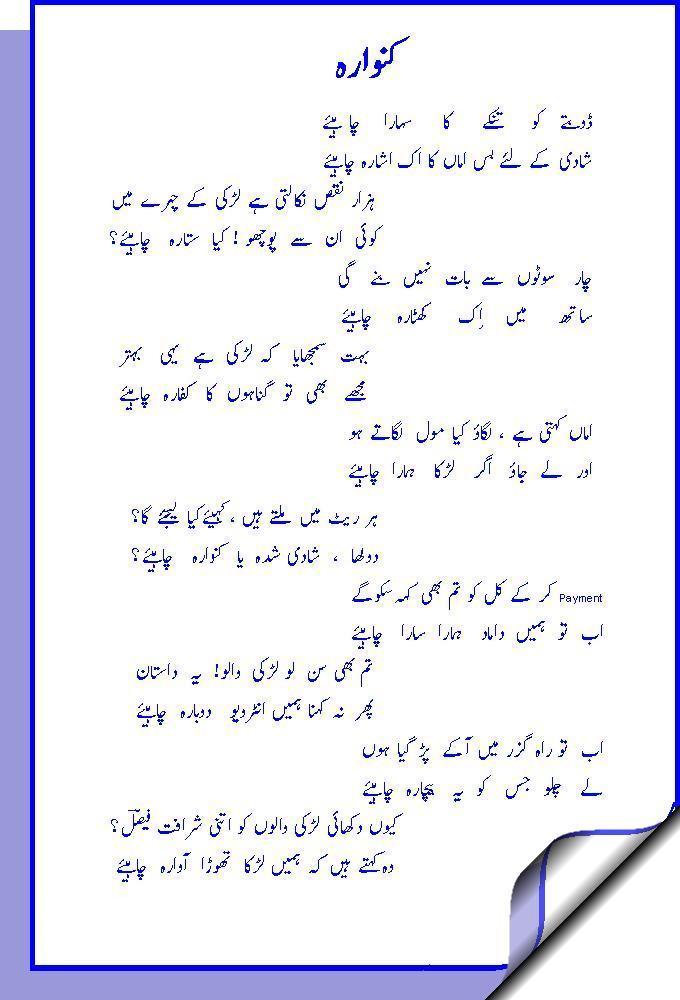 کنوارہ
ڈوبتے کو تنکے کا سہارا چاہیئے
شادی کے لئے بس اماں کا اک اشارہ چاہیئے
ہزار نقص نکالتی ہے لڑکی کے چہرے میں
کوئی ان سے پوچھو ! کیا ستارہ چاہیئے؟
چار سوٹوں سے بات نہیں بنے گی
ساتھ میں اِک کھٹارہ چاہیئے
بہت سمجھایا کہ لڑکی ہے یہی بہتر
مجھے بھی تو گناہوں کا کفارہ چاہیئے
اماں کہتی ہے ، لگاؤ کیا مول لگاتے ہو
اور لے جاؤ اگر لڑکا ہمارا چاہیئے
ہر ریٹ میں ملتے ہیں ، کہیئے کیا لیجئے گا؟
دولھا ، شادی شدہ یا کنوارہ چاہیئے؟
Payment کر کے کل کو تم بھی کہہ سکو گے
اب تو ہمیں داماد ہمارا سارا چاہیئے
تم بھی سن لو لڑکی والو! یہ داستان
پھر نہ کہنا ہمیں انٹرویو دوبارہ چاہیئے
اب تو راہ گزر میں آ کے پڑ گیا ہوں
لے چلو جس کو یہ بیچارہ چاہیئے
کیوں دکھائی لڑکی والوں کو اتنی شرافت فیصلؔ؟
وہ کہتے ہیں کہ ہمیں لڑکا تھوڑا آوارہ چاہیئے